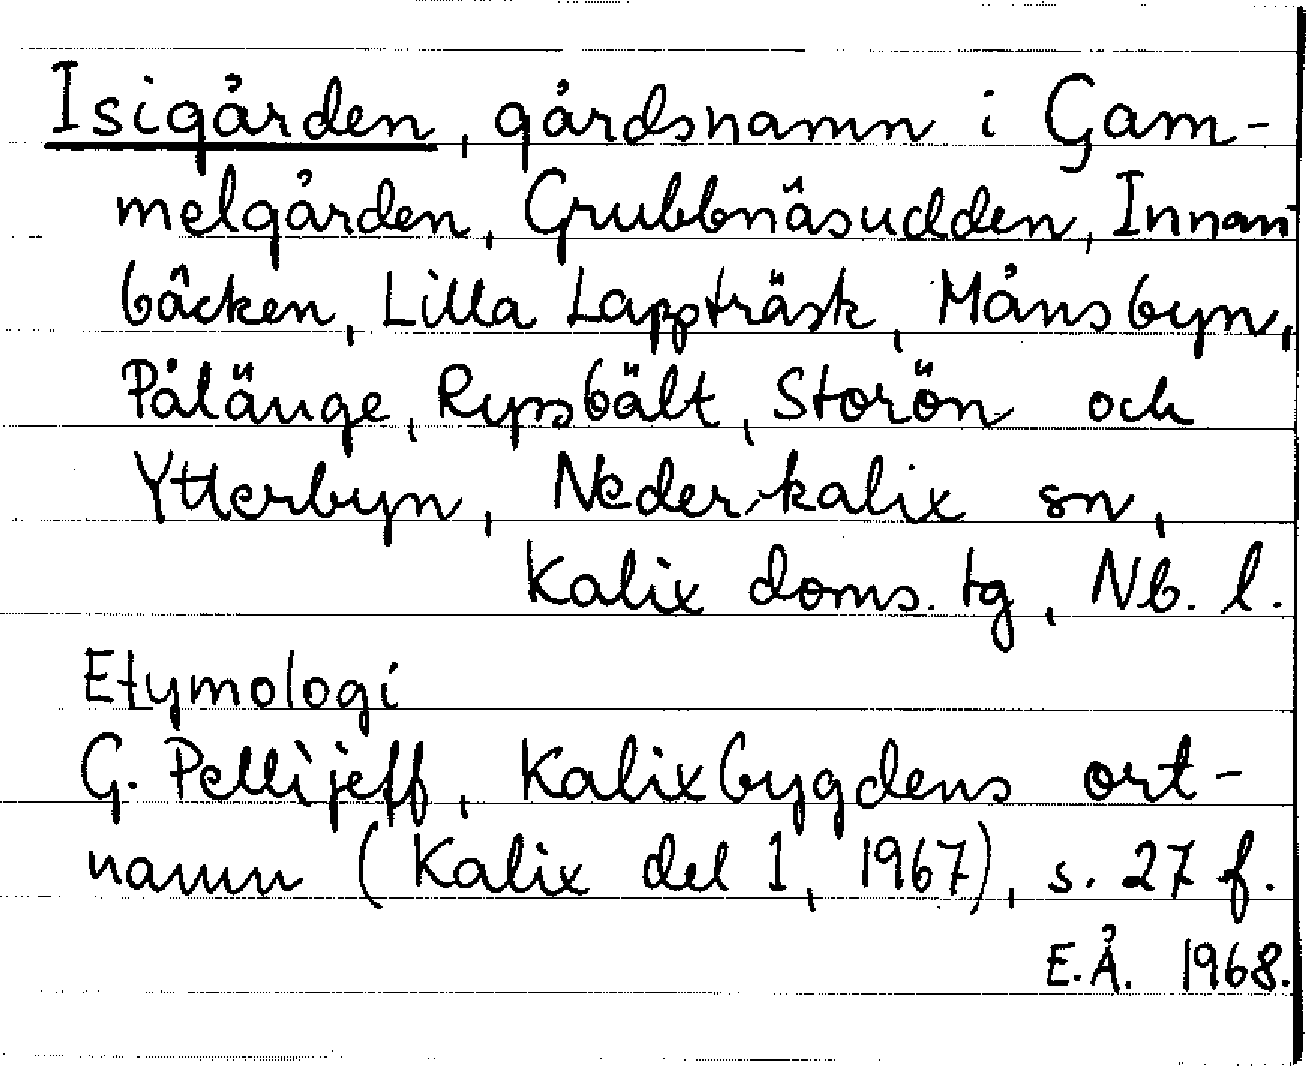 Isigården, gårdsnamn i Gam-
melgården, Grubbnäsudden, Innan
bäcken, Lilla Lappträsk, Månsbyn,
Pålänge, Ryssbält, Storön och
Ytterbyn, Nederkalix sn,
Kalix doms. tg, Nb. l.
Etymologi
G. Pellijeff, Kalixbygdens ort-
namn (Kalix del 1, 1967), s. 27 f.
E.Å. 1968.